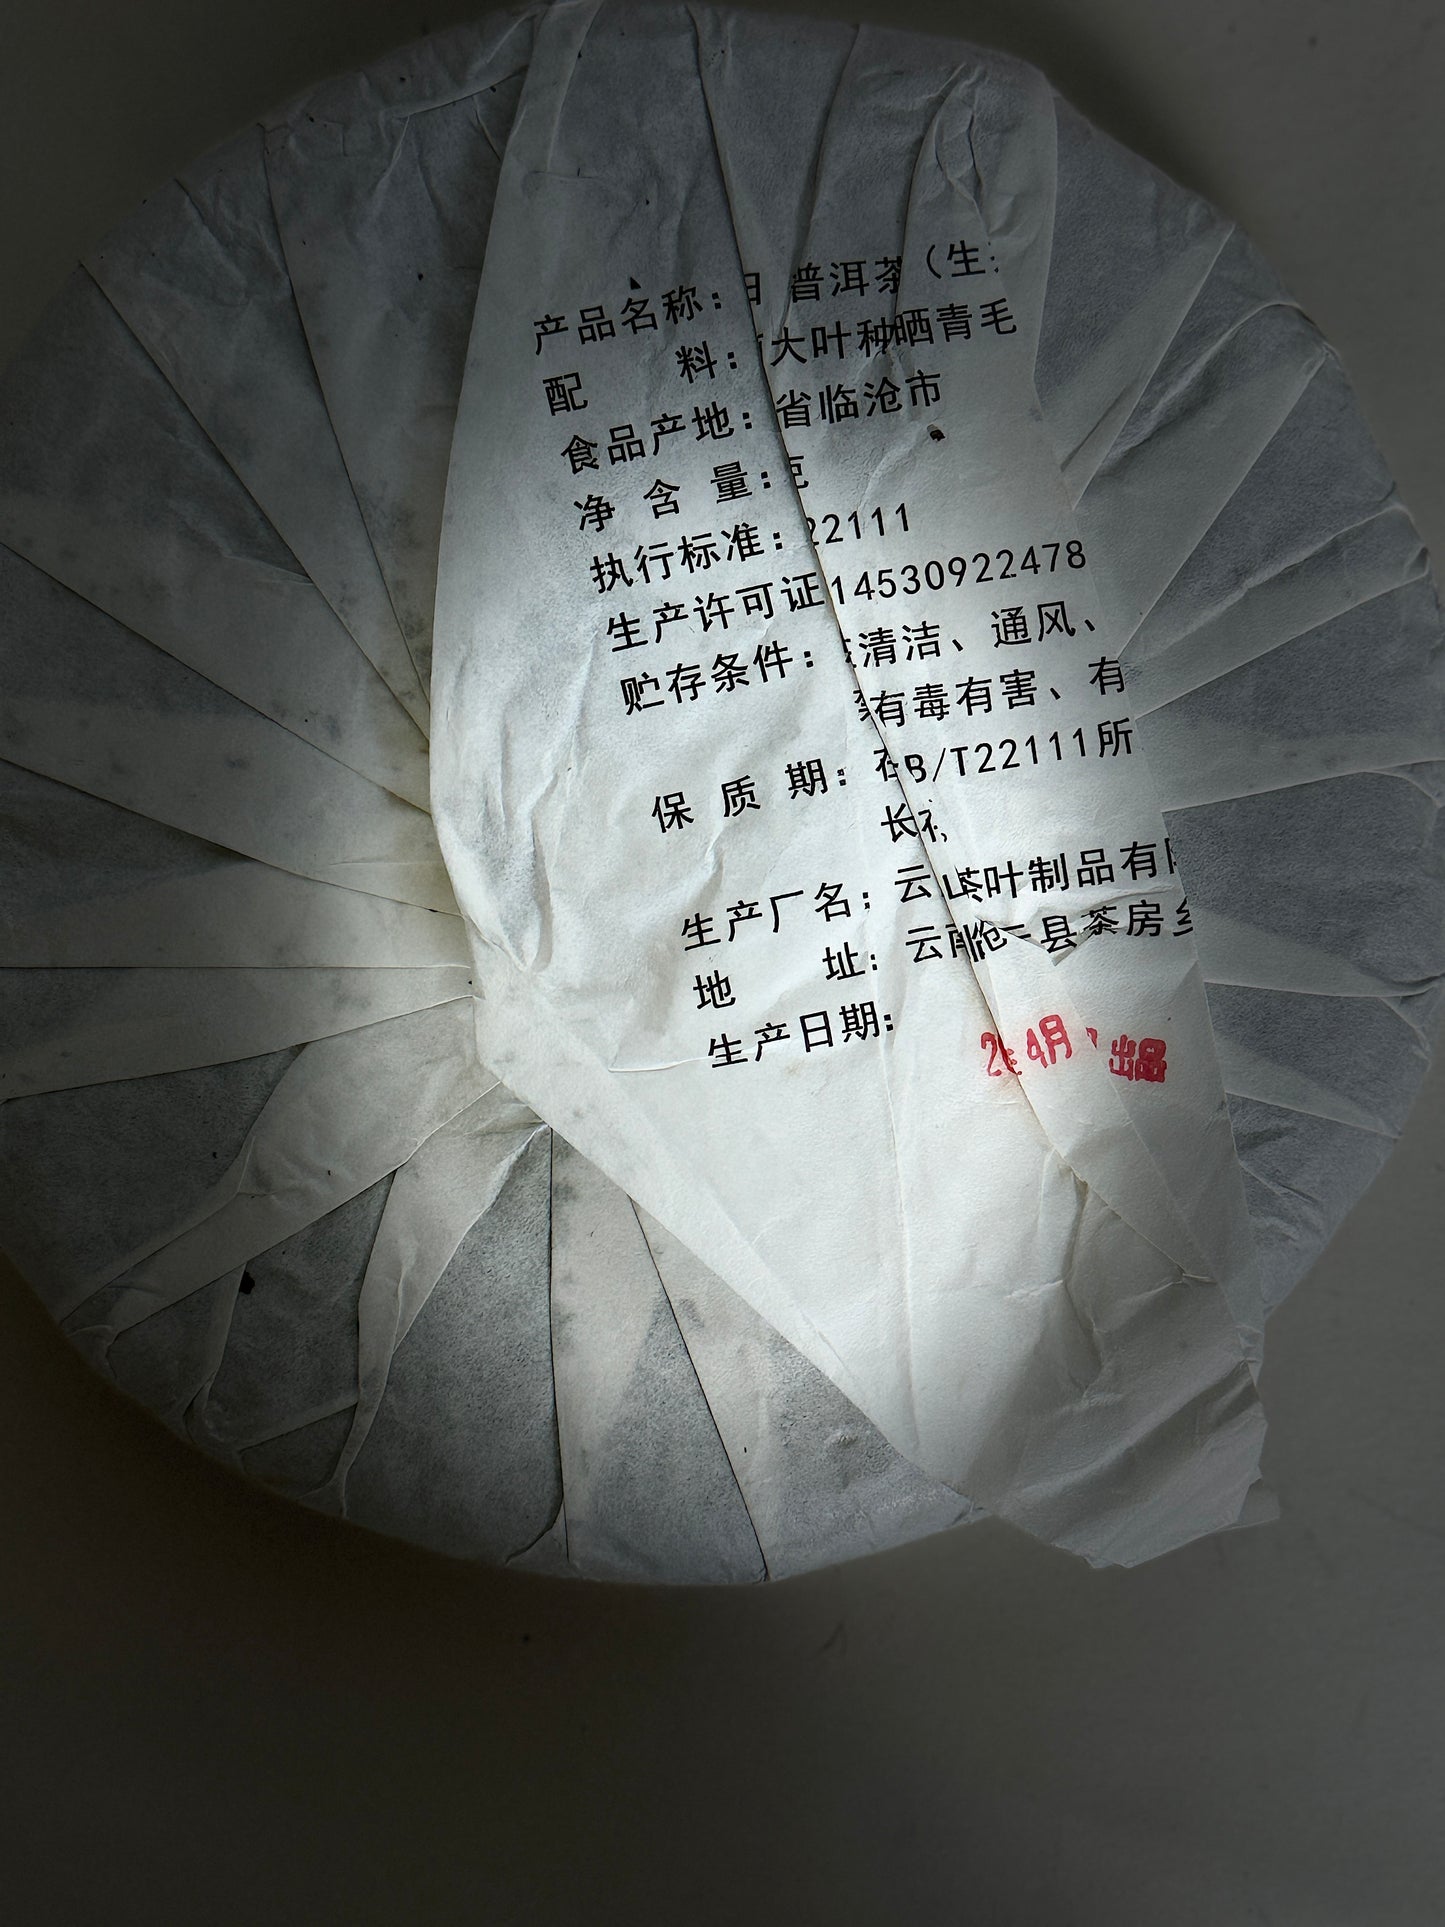 产品名称: 普洱茶（生
配 料: 大叶种晒青毛
食品产地: 省临沧市
净 含 量:
执行标准: 22111
生产许可证14530922478
贮存条件: 清洁、通风、
有毒有害、有
保 质 期: B/T22111所
长
生产厂名: 云 茶叶制品有
地 址: 云 县茶房
生产日期:
2 4月 出品